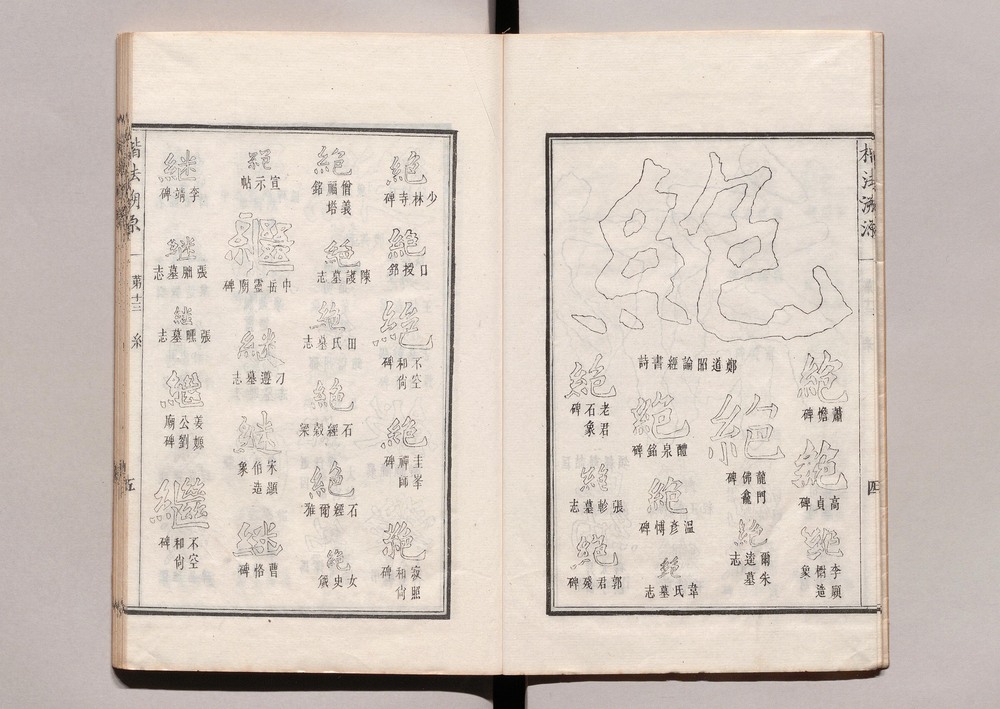 楷法溯源
四
絕
鄭道昭論經書詩
絕
蕭憺碑
絕
高貞碑
絕
李顯造象
絕
龍門佛龕碑
絕
爾朱逵墓志
絕
醴泉銘碑
絕
溫彥博碑
絕
韋氏墓志
絕
老君石象碑
絕
張軫墓志
絕
郭君殘碑
絕
少林寺碑
絕
口授銘
絕
不空和尚碑
絕
圭峯禪師碑
絕
寂照和尚碑
絕
僧義福塔銘
絕
陳護墓志
絕
田氏墓志
絕
石經穀梁
絕
石經爾雅
絕
女史箴
絕
宣示帖
繼
中岳靈廟碑
継
刁遵墓志
継
宋顯伯造象
継
曹恪碑
継
李靖碑
継
張朏墓志
継
張曛墓志
繼
姜嫄公劉廟碑
繼
不空和尚碑
楷法溯源
第十三
糸
五